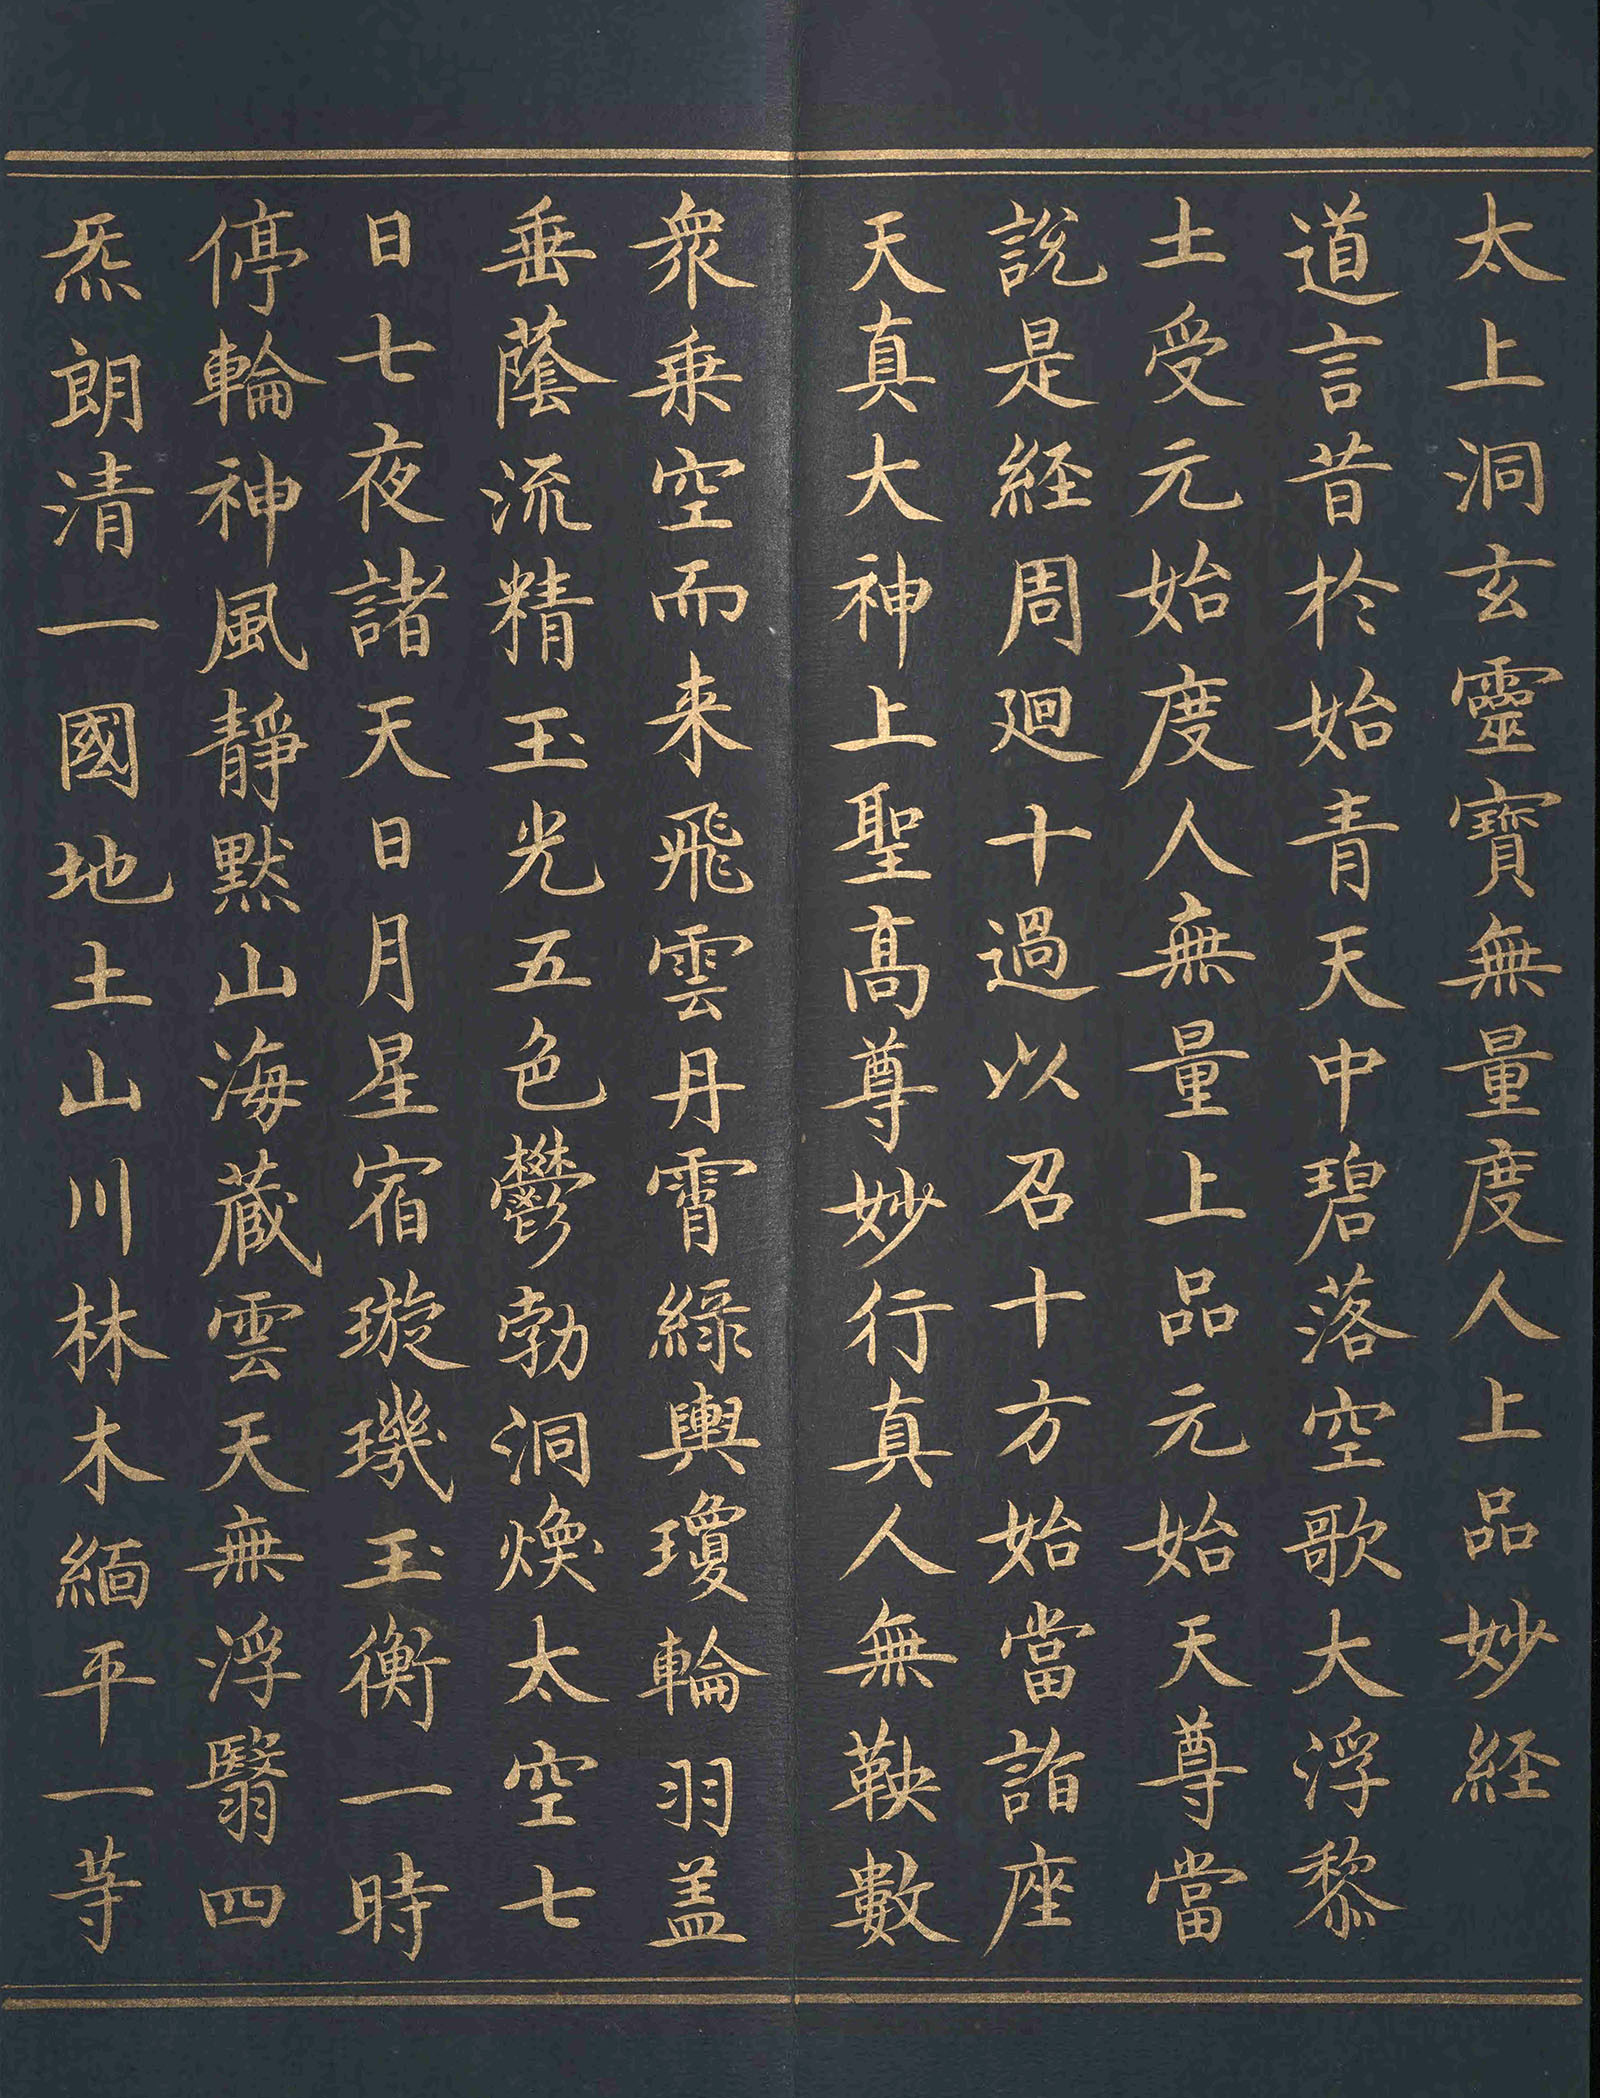 太上洞玄靈寳無量度人上品妙経
道言昔於始青天中碧落空歌大浮黎
土受元始度人無量上品元始天尊當
說是経周廻十過以召十方始當詣座
天真大神上聖髙尊妙行真人無鞅數
衆乗空而来飛雲丹霄緑輿瓊輪羽盖
垂蔭流精玉光五色鬱勃洞煥太空七
日七夜諸天日月星宿璇璣玉衡一時
停輪神風静黙山海蔵雲天無浮翳四
炁朗清一國地土山川林木緬平一等